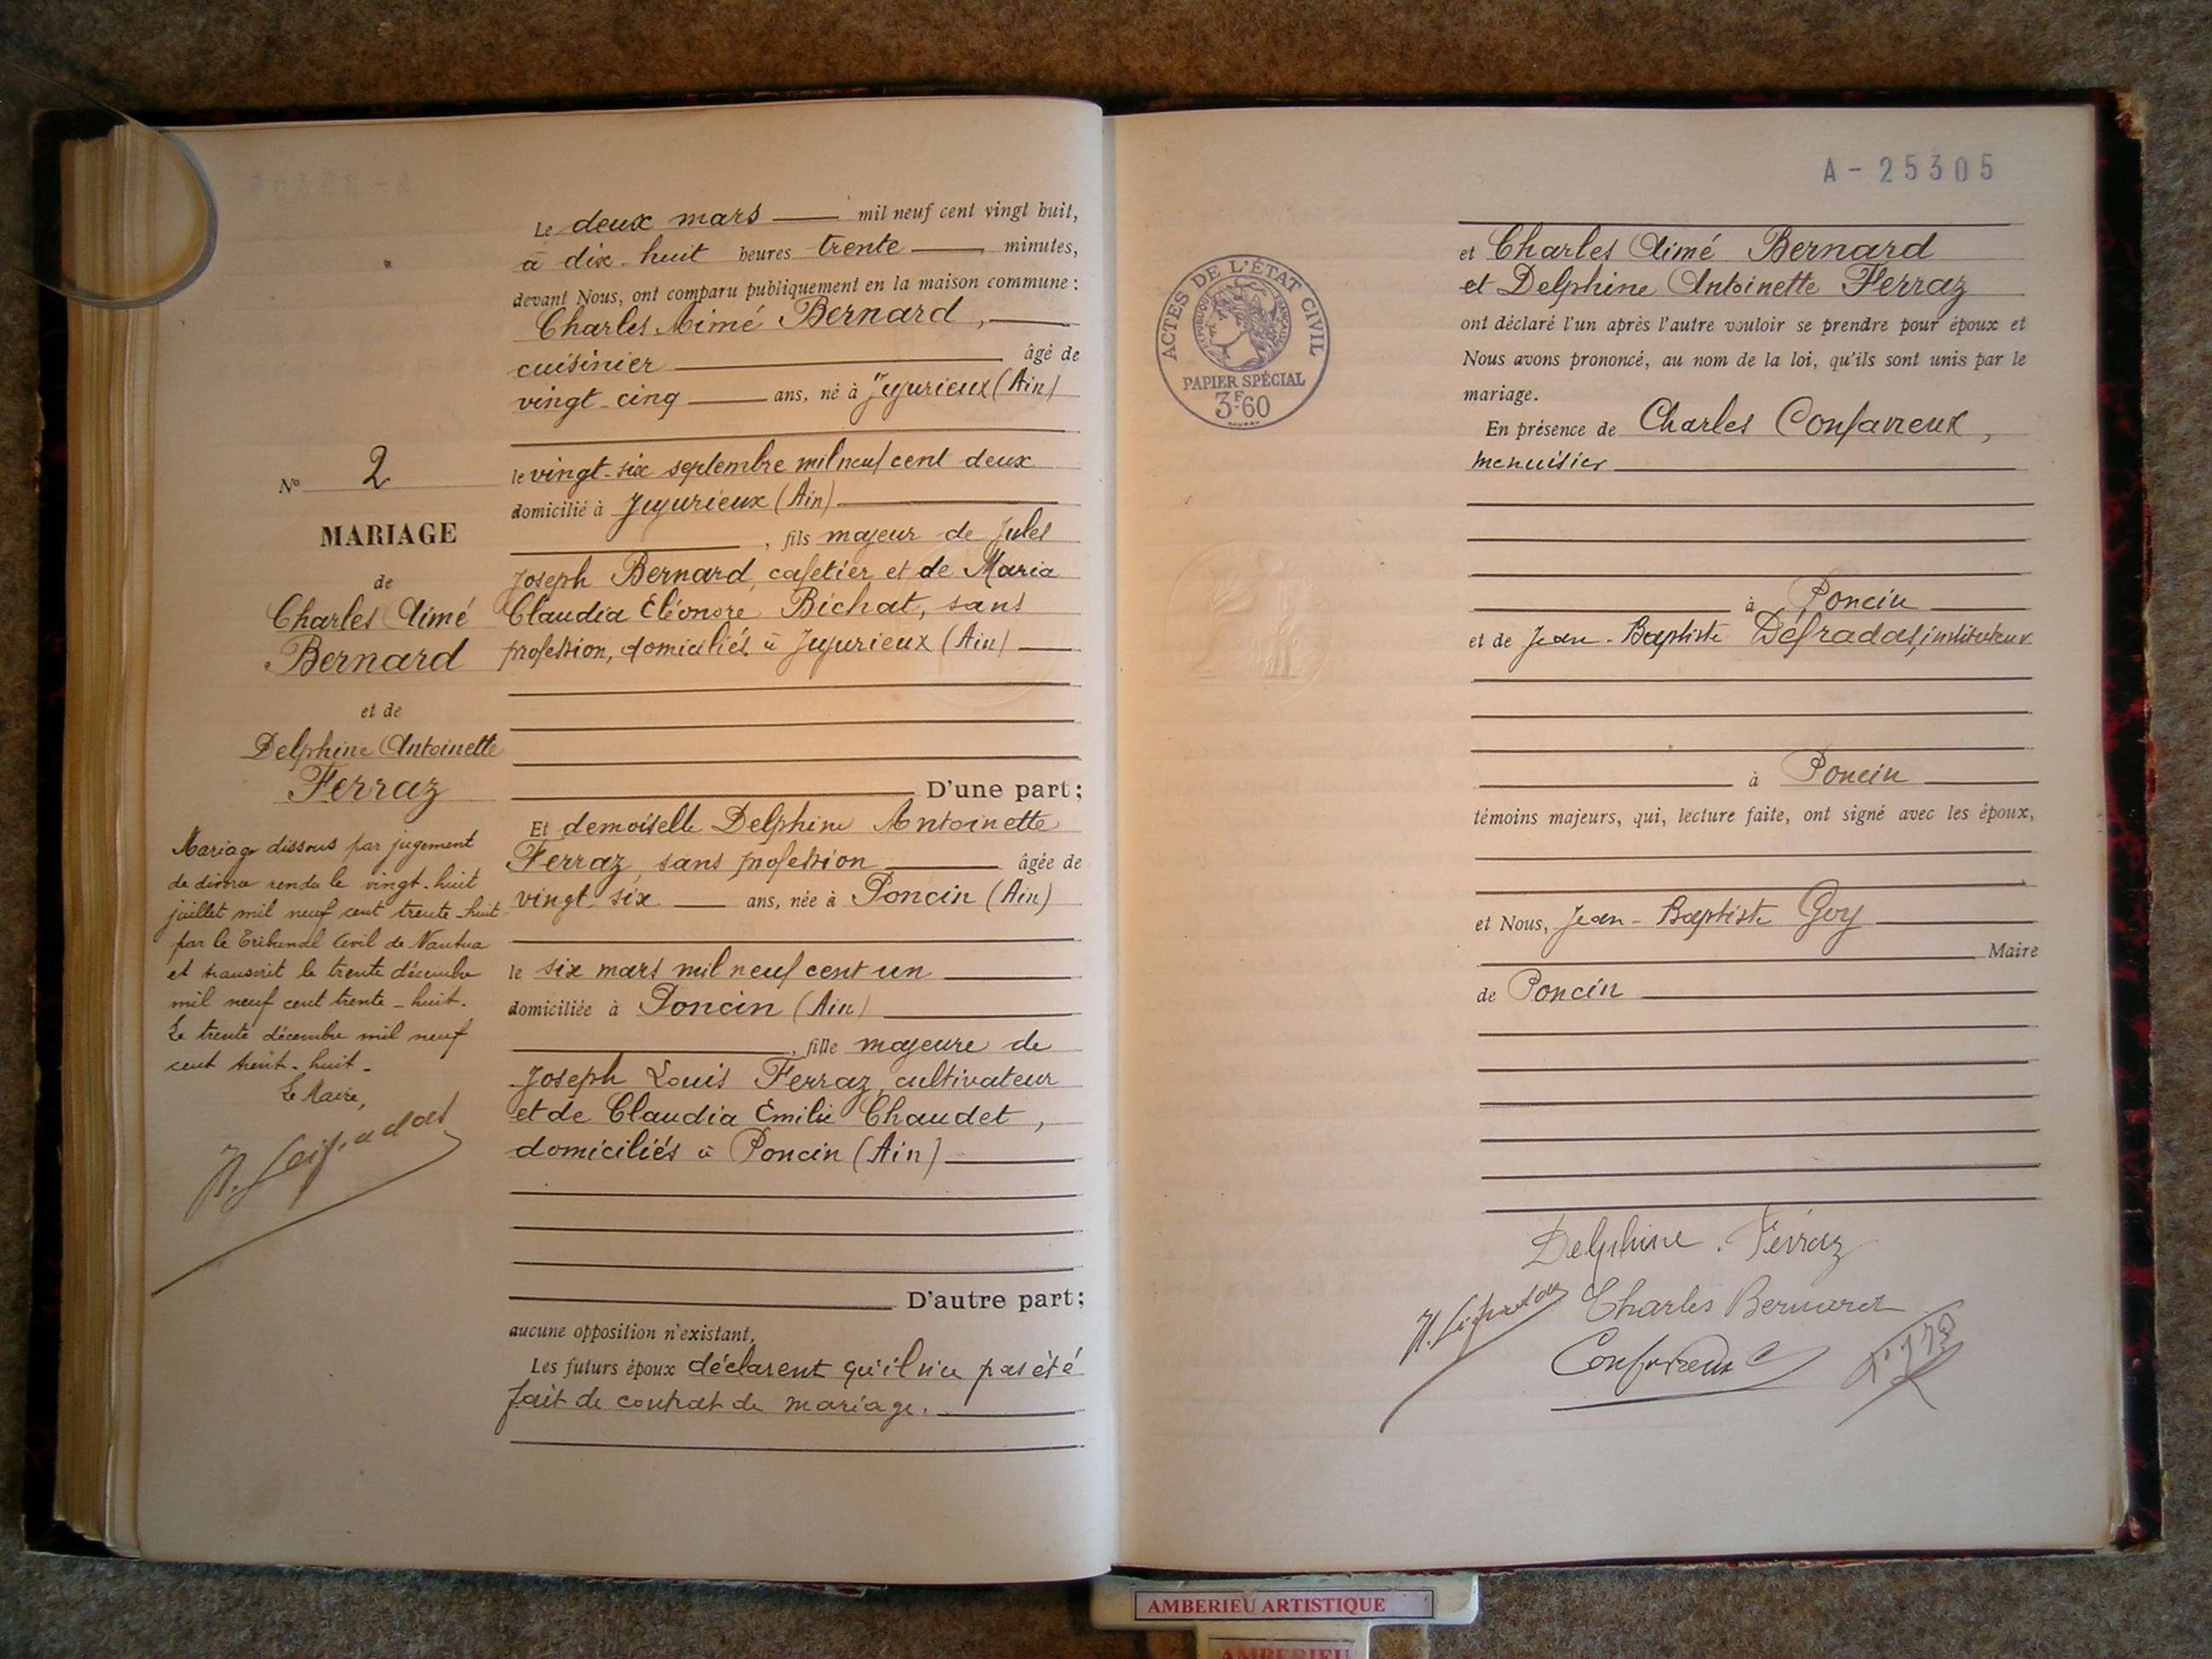 Le deux mars mil neuf cent vingt huit,
à dix-huit heures trente minutes,
devant Nous, ont comparu publiquement en la maison commune :
Charles Aimé Bernard,
cuisinier âgé de
vingt-cinq ans, né à Jujurieux (Ain)
le vingt-six septembre mil neuf cent deux
domicilié à Jujurieux (Ain)
, fils majeur de Jules
Joseph Bernard, cafetier et de Maria
Claudia Eléonore Bichat, sans
profession, domiciliés à Jujurieux (Ain)
D'une part ;
Et demoiselle Delphine Antoinette
Ferraz, sans profession âgée de
vingt six ans, née à Poncin (Ain)
le six mars mil neuf cent un
domiciliée à Poncin (Ain)
, fille majeure de
Joseph Louis Ferraz, cultivateur
et de Claudia Emilie Chaudet,
domiciliés à Poncin (Ain)
D'autre part ;
aucune opposition n'existant,
Les futurs époux déclarent qu'il n'a pas été
fait de contrat de mariage.
No 2
MARIAGE
de
Charles Aimé
Bernard
et de
Delphine Antoinette
Ferraz
Mariage dissous par jugement
de divorce rendu le vingt-huit
juillet mil neuf cent trente-huit
par le Tribunal Civil de Nantua
et transcrit le trente décembre
mil neuf cent trente-huit.
Le trente décembre mil neuf
cent trent-huit-
Le Maire,
A-25305
ACTES DE L'ÉTAT CIVIL
RÉPUBLIQUE FRANÇAISE
PAPIER SPÉCIAL
3F60
et Charles Aimé Bernard
et Delphine Antoinette Ferraz
ont déclaré l'un après l'autre vouloir se prendre pour époux et
Nous avons prononcé, au nom de la loi, qu'ils sont unis par le
mariage.
En présence de Charles Confavreux,
menuisier
à Poncin
et de Jean-Baptiste Défradas, instituteur
à Poncin
témoins majeurs, qui, lecture faite, ont signé avec les époux,
et Nous, Jean-Baptiste Goy
Maire
de Poncin
Delphine Ferraz
Charles Bernard
Confavreux
AMBERIEU ARTISTIQUE
AMBERIEU